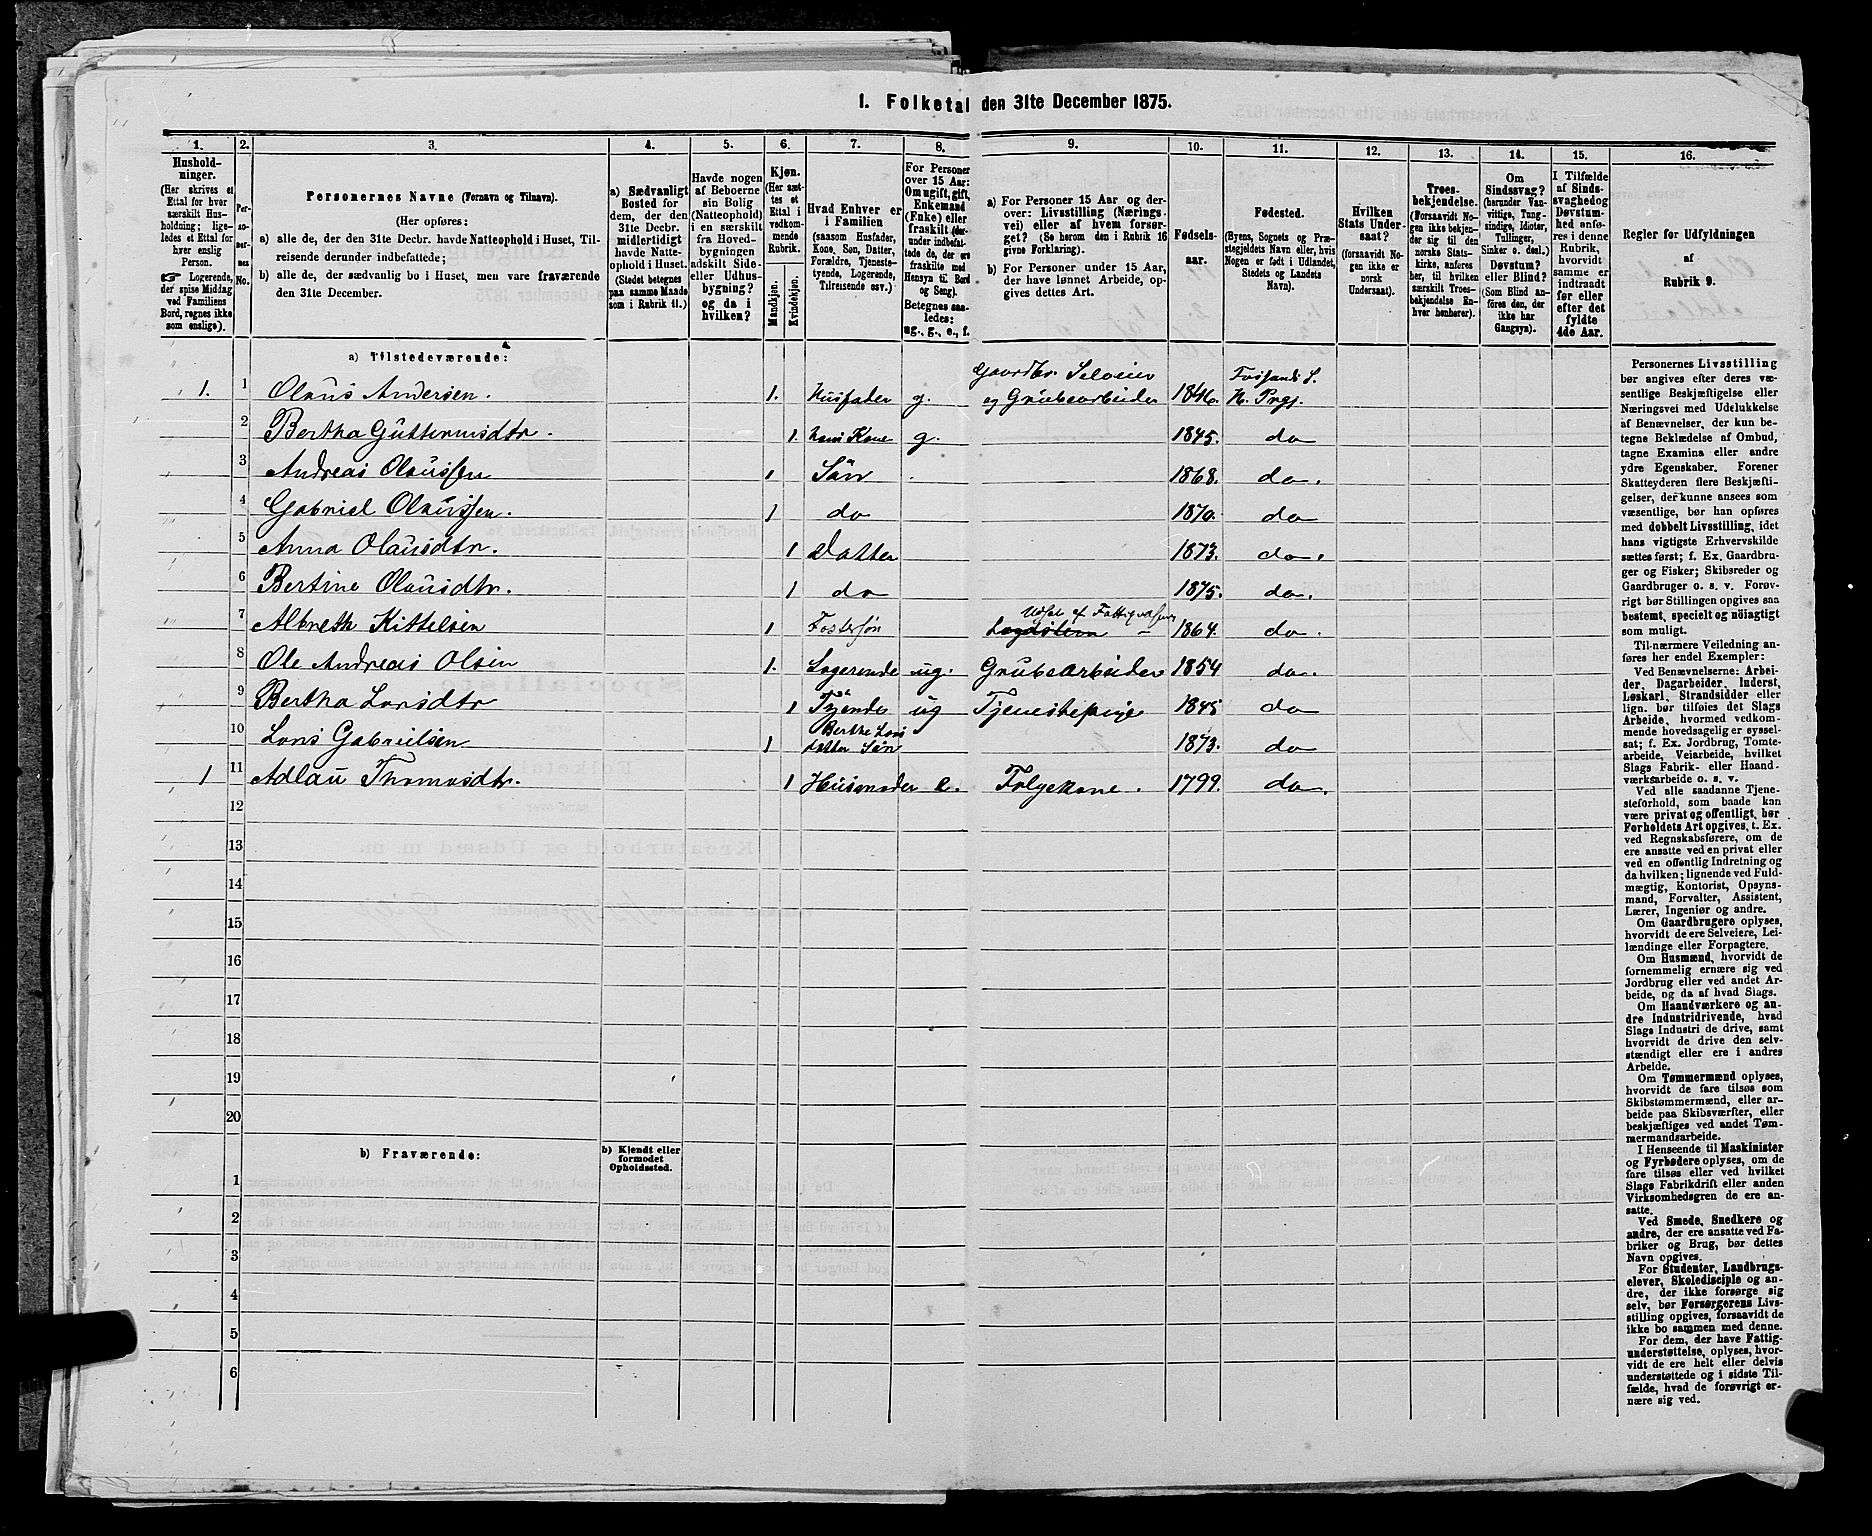 1. Folketal den 31te December 1875.
1. 2. 3. 4. 5. 6. 7. 8. 9. 10. 11. 12. 13. 14. 15. 16.
Hushold-
ninger.
(Her skrives et
Ettal for hver
særskilt Hus-
holdning; lige-
ledes et Ettal for
hver enslig
Person.
☞ Logerende,
der spise Middag
ved Familiens
Bord, regnes ikke
som enslige).
Per-
soner-
nes
No.
Personernes Navne (Fornavn og Tilnavn).
(Her opføres:
a) alle de, der den 31te Decbr. havde Natteophold i Huset, Til-
reisende derunder indbefattede;
b) alle de, der sædvanlig bo i Huset, men vare fraværende
den 31te December.
a) Sædvanligt
Bosted for
dem, der den
31te Decbr.
midlertidigt
havde Natte-
ophold i Huset.
(Stedet betegnes
paa samme Maade
som i Rubrik 11.)
Havde nogen
af Beboerne
sin Bolig
(Natteophold)
i en særskilt
fra Hoved-
bygningen
adskilt Side-
eller Udhus-
bygning?
og da i
hvilken?
Kjøn.
(Her sæt-
tes et
Ettal i
vedkom-
mende
Rubrik.
Mandkjøn.
Kvindekjøn.
Hvad Enhver er
i Familien
(saasom Husfader,
Kone, Søn, Datter,
Forældre, Tjeneste-
tyende, Logerende,
Tilreisende osv.)
For Personer
over 15 Aar:
Om ugift, gift,
Enkemand
(Enke) eller
fraskilt (her-
under indbefat-
tede de, der ere
fraskilte med
Hensyn til Bord
og Seng).
Betegnes saa-
ledes:
ug., g., e., f.
a) For Personer 15 Aar og der-
over: Livsstilling (Nærings-
vei) eller af hvem forsør-
get? (Se herom den i Rubrik 16
givne Forklaring).
b) For Personer under 15 Aar,
der have lønnet Arbeide, op-
gives dettes Art.
Fødsels-
aar.
Fødested.
(Byens, Sognets og Præ-
stegjeldets Navn eller, hvis
Nogen er født i Udlandet,
Stedets og Landets
Navn).
Hvilken
Stats Under-
saat?
(forsaavidt No-
gen ikke er
norsk
Undersaat).
Troes-
bekjendelse.
(Forsaavidt No-
gen ikke bekjen-
der sig til den
norske Stats-
kirke, anføres
her, til hvilken
særskilt Troes-
bekjendelse En-
hver henhører).
Om
Sindssvag?
(herunder Van-
vittige, Tung-
sindige, Idioter,
Tullinger,
Sinker o. desl.)
Døvstum?
eller Blind?
(Som Blind an-
føres den, der
ikke har
Gangsyn).
I Tilfælde
af Sinds-
svaghed og
Døvstum-
hed anfø-
res i denne
Rubrik,
hvorvidt
samme er
indtraadt
før eller
efter det
fyldte
4de Aar.
Regler for Udfyldningen
af
Rubrik 9.
a) Tilstedeværende:
1. 1 Olaus Andersen. 1. Husfader g. Gaardbr. Selveier og Grubearbeider 1846. Fossands S. H. Prgj.
2 Bertha Guttermsdtr. 1. hans Kone g. 1845. do
3 Andreas Olaussen 1 Søn 1868. do.
4 Gabriel Olaussen. 1 do 1870. do
5 Anna Olausdtr. 1 Datter 1873. do.
6 Bertine Olausdtr. 1 do 1875. do.
7 Albreth Kittelsen 1 Fostersøn 1864. do.
8 Ole Andreas Olsen 1. Logerende ug. Grubearbeider 1854 do.
9 Bertha Larsdtr 1 Tjende ug Tjenestepige 1845 do
10 Lars Gabrielsen 1 Berthe Lars datter Søn 1873. do
1 11 Adlau Thomasdtr. 1 Husmoder e. Folgekone. 1799. do.
12
13
14
15
16
17
18
19
20
b) Fraværende:
b) Kjendt eller
formodet
Opholdssted.
1
2
3
4
5
6
Personernes Livsstilling
bør angives efter deres væ-
sentlige Beskjæftigelse eller
Næringsvei med Udelukkelse
af Benævnelser, der kun be-
tegne Beklædelse af Ombud,
tagne Examina eller andre
ydre Egenskaber. Forener
Skatteyderen flere Beskjæfti-
gelser, der kunne ansees som
væsentlige, bør han opføres
med dobbelt Livsstilling, idet
hans vigtigste Erhvervskilde
sættes først; f. Ex. Gaardbru-
ger og Fisker; Skibsreder og
Gaardbruger o. s. v. Forøv-
rigt bør Stillingen opgives saa
bestemt, specielt og nöiagtigt
som muligt.
Til nærmere Veiledning an-
føres her endel Exempler:
Ved Benævnelserne: Arbei-
der, Dagarbeider, Inderst,
Løskarl, Strandsidder eller
lign. bør tilføies det Slags
Arbeide, hvormed vedkom-
mende hovedsagelig er syssel-
sat; f. Ex. Jordbrug, Tomte-
arbeide, Veiarbeide, hvilket
Slags Fabrik- eller Haand-
værksarbeide o. s. v.
Ved alle saadanne Tjene-
steforhold, som baade kan
være privat og offentligt, bør
Forholdets Art opgives, t. Ex.
ved Regnskabsførere, om de
ere ansatte ved en privat eller
ved en offentlig Indretning og
da hvilken; lignende ved Fuld-
mægtig, Kontorist, Opsyns-
mand, Forvalter, Assistent,
Lærer, Ingeniør og andre.
Om Gaardbrugere oplyses,
hvorvidt de ere Selveiere, Lei-
lændinge eller Forpagtere.
Om Husmænd, hvorvidt de
fornemmelig ernære sig ved
Jordbrug eller ved andet Ar-
beide, og da af hvad Slags.
Om Haandværkere og an-
dre Industridrivende, hvad
Slags Industri de drive, samt
hvorvidt de drive den selv-
stændigt eller ere i andres
Arbeide.
Om Tømmermænd oplyses,
hvorvidt de fare tilsøs som
Skibstømmermænd, eller ar-
beide paa Skibsværfter, eller
beskjæftiges ved andet Tøm-
mermandsarbeide.
I Henseende til Maskinister
og Fyrbødere oplyses, om de
fare tilsøs eller ved hvilket
Slags Fabrikdrift eller anden
Virksomhedsgren de ere an-
satte.
Ved Smede, Snedkere og
andre, der ere ansatte ved Fa-
briker og Brug, bør dettes
Navn opgives.
For Studenter, Landbrugs-
elever, Skoledisciple og an-
dre, der ikke forsørge sig
selv, bør Forsørgerens Livs-
stilling opgives, forsaavidt de
ikke bo sammen med denne.
For dem, der have Fattig-
understøttelse, oplyses, hvor-
vidt de ere helt eller delvis
understøttede og i sidste Til-
fælde, hvad de forøvrigt er-
nære sig ved.